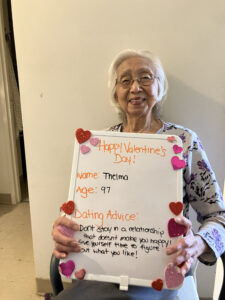 Happy Valentine's
Day!
Name: Thelma
Age: 97
Dating Advice:
Don't stay in a relationship
that doesn't make you happy!
Give yourself time to figure
out what you like!